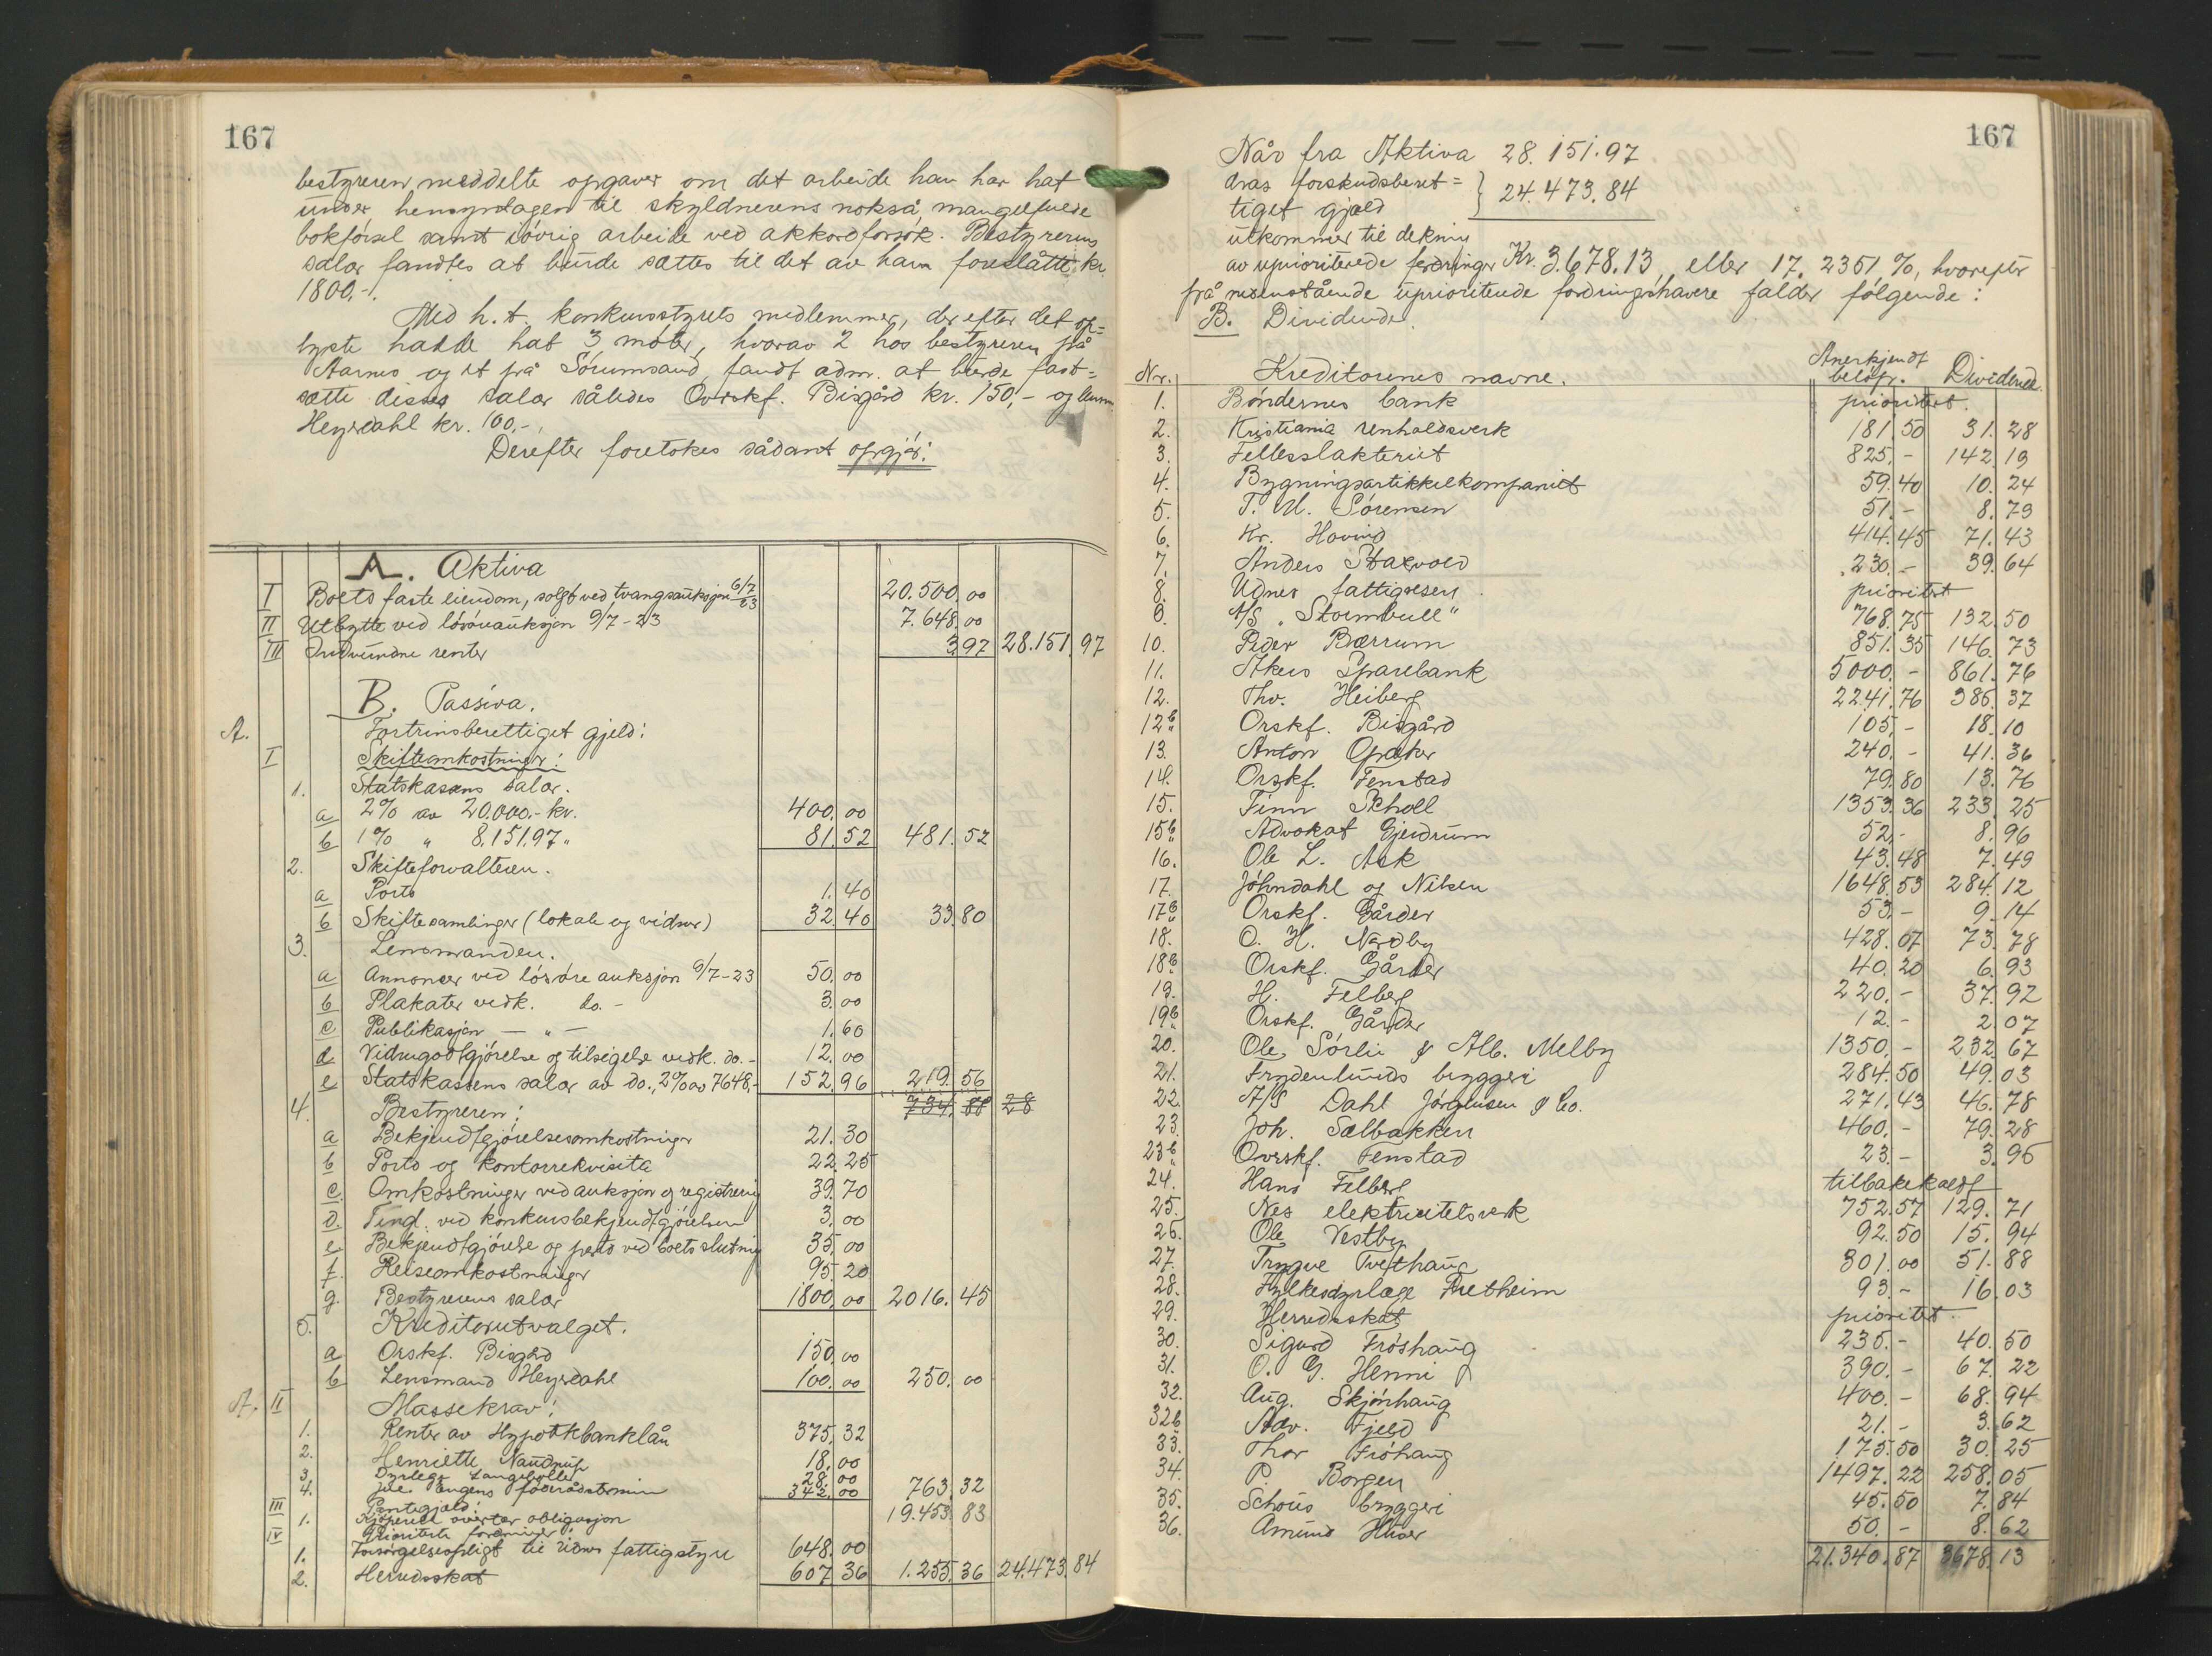 167
bestyreren meddelte opgaver om det arbeide han har hat
under hensyntagen til skyldnerens nokså mangelfulde
bokførsel samt iøvrig arbeide ved akkordforsøk. Bestyrerens
salær fandtes at burde sættes til det av ham foreslåtte kr.
1800,-.
Med h.t. konkursstyrets medlemmer, der efter det op=
lyste hadde hat 3 møter, hvorav 2 hos bestyreren på
Aarnes og et på Sørumsand, fandt adm. at burde fast=
sætte disses salær således Overskf. Bisgård kr. 150,- og lensm.
Heyerdahl kr. 100,-.
Derefter foretokes sådant opgjør:
A. Aktiva
I Boets faste eiendom, solgt ved tvangsauksjon 6/7 23 20.500.00
II Utbytte ved løsøreauksjon 9/7-23 7.648.00
III Indvundne renter 3.97 28.151.97
B. Passiva.
A. Fortrinsberettiget gjeld:
I Skifteomkostninger:
1. Statskassens salær.
a 2% av 20.000,- kr. 400.00
b 1% " 8.151.97 " 81.52 481.52
2. Skifteforvalteren.
a Porto 1.40
b Skiftesamlinger (lokale og vidner) 32.40 33.80
3. Lensmanden.
a Annonser ved løsøreauksjon 9/7-23 50.00
b Plakater vedk. do. - 3.00
c Publikasjon — " — 1.60
d Vidnegodtgjørelse og tilsigelse vedk. do. - 12.00
e Statskassens salær av do., 2% av 7648,- 152.96 219.56
734.88 28
4. Bestyreren:
a Bekjendtgjørelsesomkostninger 21.30
b Porto og kontorrekvisita 22.25
c Omkostninger ved auksjon og registrering 39.70
d. Tingl. ved konkursbekjendtgjørelsen 3.00
e Bekjendtgjørelse og porto ved boets slutning 35.00
f. Reiseomkostninger 95.20
g. Bestyrerens salær 1800.00 2016.45
5. Kreditorutvalget.
a Orskf. Bisgård 150.00
b Lensmand Heyerdahl 100.00 250.00
A. II Massekrav:
1. Renter av Hypotekbanklån 375.32
2. Henriette Naudrup 18.00
3. Dyrlege 28.00
4. føderådstermin 342.00 763.32
III Pantegjæld:
1. Kjøperen overtar obligasjon 19.453.83
IV Prioriterte fordringer:
1. Forsørgelsespligt til Udnes fattigstyre 648.00
2. Herredsskat 607.36 1.255.36 24.473.84
167
Når fra Aktiva 28.151.97
dras forskudsberet= } 24.473.84
tiget gjæld
utkommer til dekning
av uprioriterede fordringer Kr. 3.678.13, eller 17.2351 %, hvorefter
på nedenstående uprioriterede fordringshavere falder følgende:
B. Dividende.
Nr. Kreditorenes navne. Anerkjendt beløp. Dividende.
1. Bøndernes bank prioritert.
2. Kristiania renholdsverk 181.50 31.28
3. Fellesslakteriet 825.- 142.19
4. Bygningsartikkelkompaniet 59.40 10.24
5. T. M. Sørensen 51.- 8.79
6. Kr. Hovind 414.45 71.43
7. Anders Staxvold 230.- 39.64
8. Udnes fattigvesen prioritert
9. A/S "Stormbull" 768.75 132.50
10. Peder Bærrum 851.35 146.73
11. Akers Sparebank 5000.- 861.76
12. Thv. Heiberg 2241.76 386.37
12b Orskf. Bisgård 105.- 18.10
13. Anton Opaker 240.- 41.36
14. Orskf. Fenstad 79.80 13.76
15. Finn Scholl 1353.36 233.25
15b Advokat Gjerdrum 52.- 8.96
16. Ole L. Ask 43.48 7.49
17. Johndahl og Nilsen 1648.53 284.12
17b Orskf. Gårder 53.- 9.14
18. O. H. Nordby 428.07 73.78
18b Orskf. Gårder 40.20 6.93
19. H. Felberg 220.- 37.92
19b Orskf. Gårder 12.- 2.07
20. Ole Sørlie & Alb. Melby 1350.- 232.67
21. Frydenlunds bryggeri 284.50 49.03
22. A/S Dahl Jørgensen & Co. 271.43 46.78
23. Joh. Sælbakken 460.- 79.28
23b Overskf. Fenstad 23.- 3.96
24. Hans Felberg tilbakekaldt
25. Nes elektricitetsverk 752.57 129.71
26. Ole Vestby 92.50 15.94
27. Trygve Tvethaug 301.00 51.88
28. Fylkesdyrlæge Fretheim 93.- 16.03
29. Herredsskat prioritert.
30. Sigurd Frøshaug 235.- 40.50
31. O. G. Henni 390.- 67.22
32. Aug. Skjønhaug 400.- 68.94
32b Adv. Fjeld 21.- 3.62
33. Thor Frøhaug 175.50 30.25
34. P. Borgen 1497.22 258.05
35. Schous bryggeri 45.50 7.84
36. Amund Huser 50.- 8.62
21.340.87 3678.13